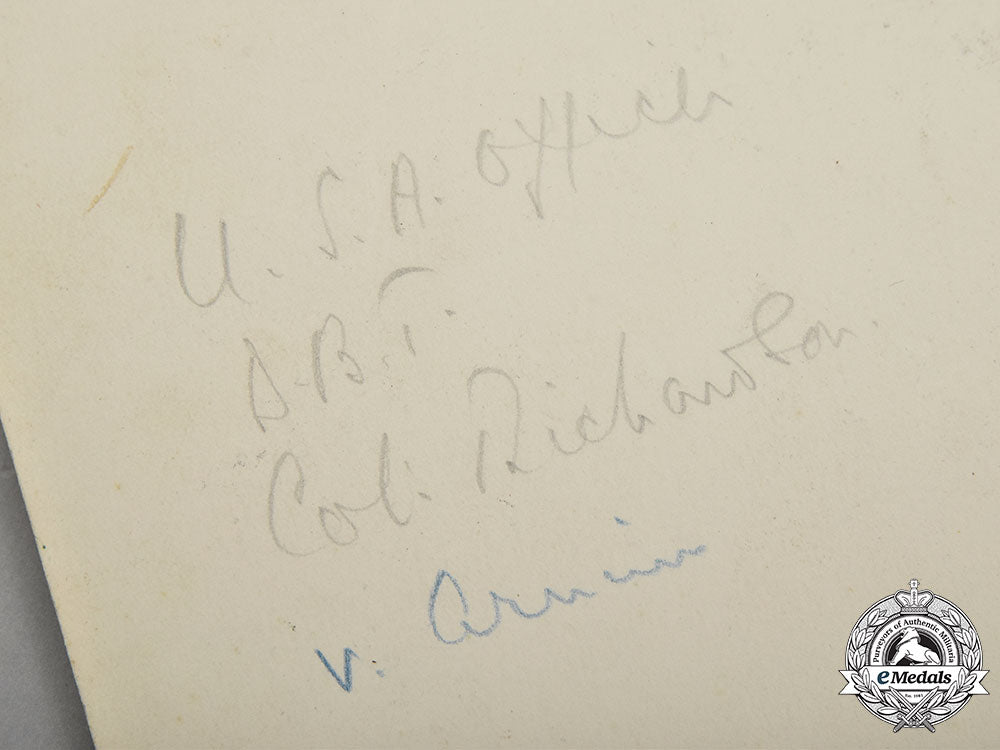 U.S.A. Office
D.B.T.
Col. Richardson.
v. Arnim
Purveyors of Authentic Militaria
eMedals